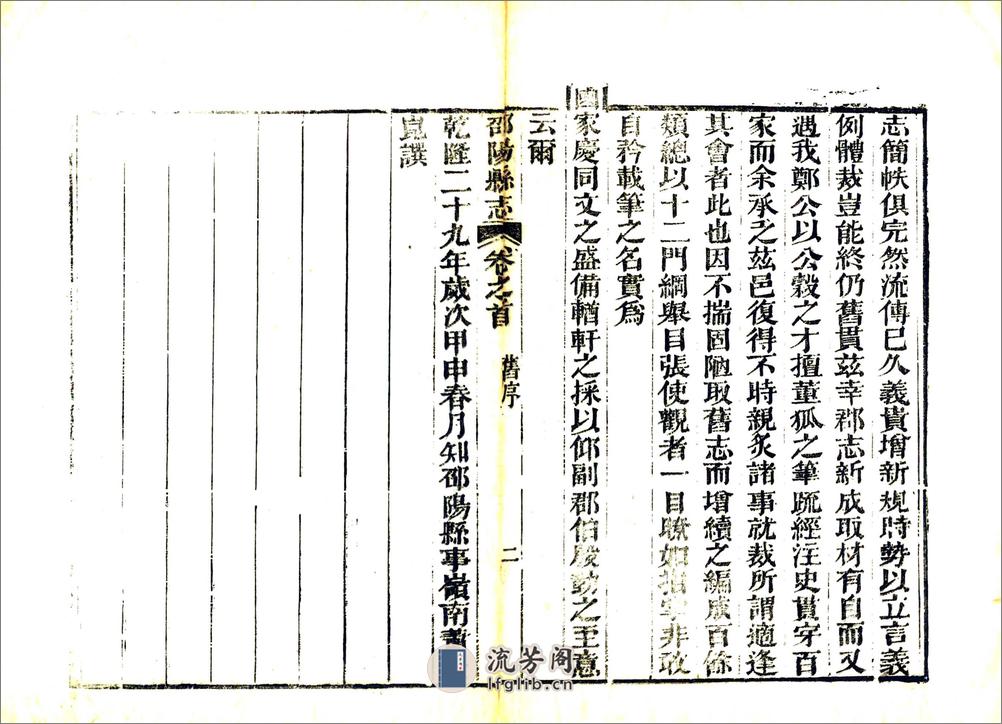 志簡帙俱完然流傳已久義貴增新規時勢以立言義
例體裁豈能終仍舊貫茲幸郡志新成取材有自而又
遇我鄭公以公穀之才擅董狐之筆疏經注史貫穿百
家而余承乏茲邑復得不時親炙諸事就裁所謂適逢
其會者此也因不揣固陋取舊志而增續之編成百餘
類總以十二門綱舉目張使觀者一目瞭如指掌非敢
自矜載筆之名實爲
國家慶同文之盛備輶軒之採以仰副郡伯殷勤之至意
云爾
邵陽縣志 卷之首 舊序 二
乾隆二十九年歲次甲申春月知邵陽縣事嶺南
崑譔
流芳阁
lfglib.cn